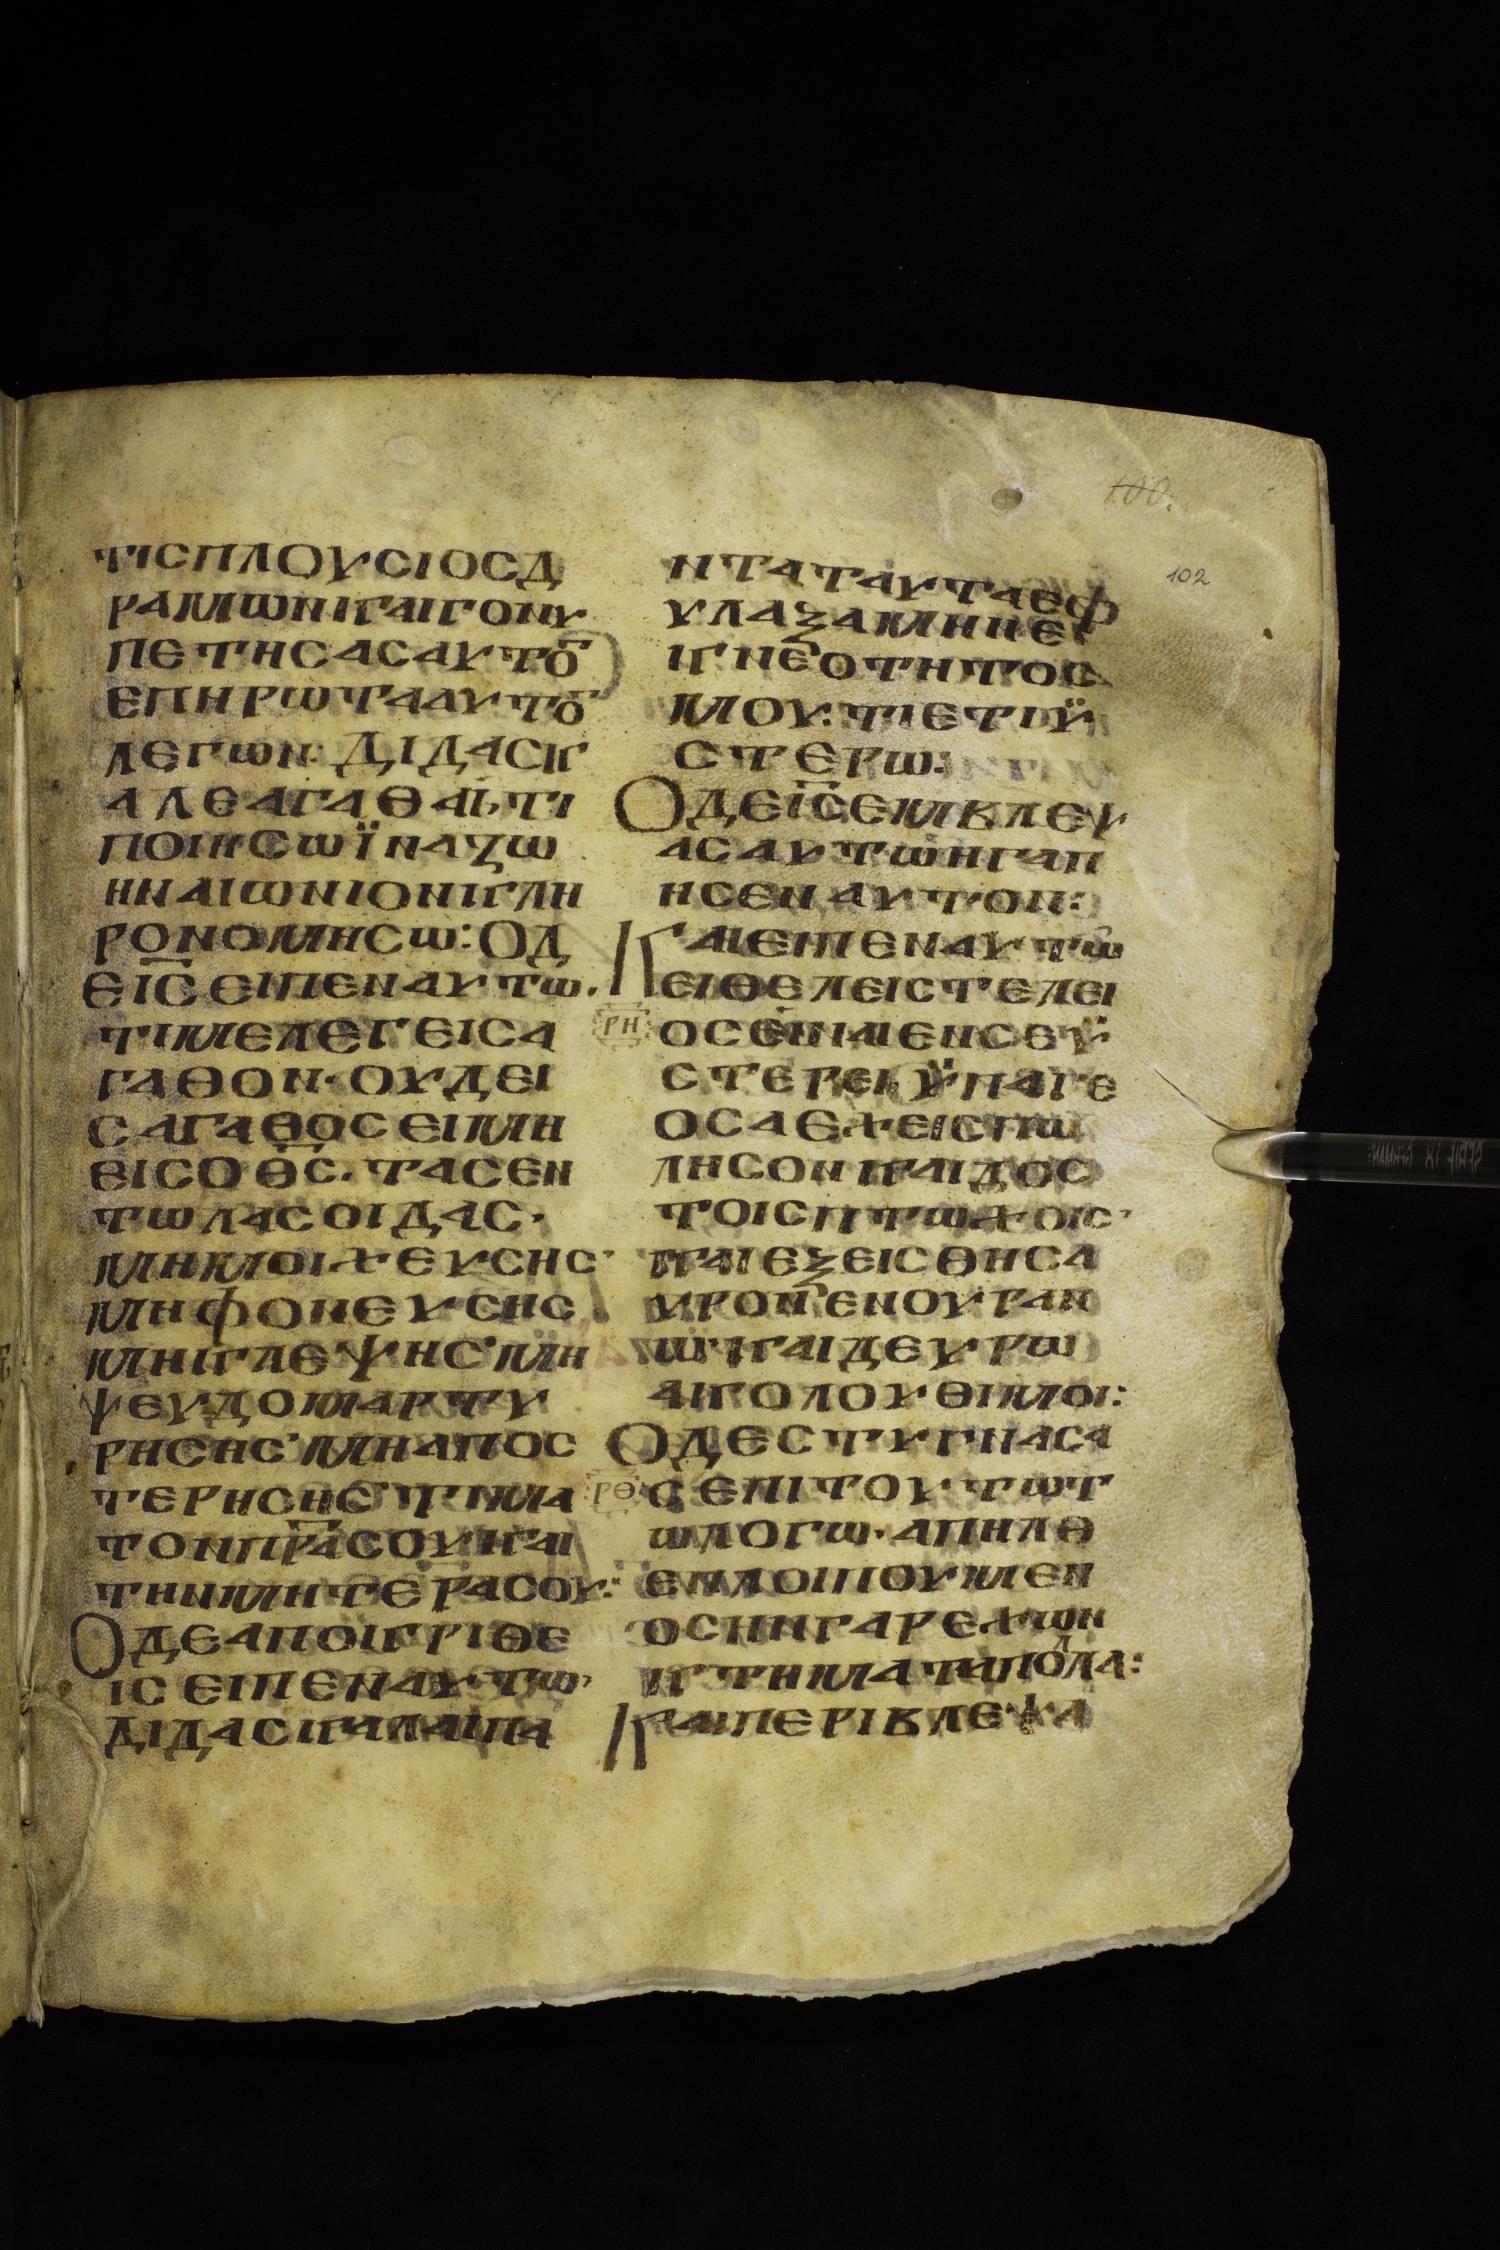 100.
102
ΤΙΣΠΛΟΥΣΙΟΣΔ
ΡΑΜΩΝΚΑΙΓΟΝΥ
ΠΕΤΗΣΑΣΑΥΤΟ̅
ΕΠΗΡΩΤΑΑΥΤΟ̅
ΛΕΓΩΝ· ΔΙΔΑΣΚ
ΑΛΕΑΓΑΘΑΙ· ΤΙ
ΠΟΙΗΣΩΪΝΑΖΩ
ΗΝΑΙΩΝΙΟΝΚΛΗ
ΡΟΝΟΜΗΣΩ: ΟΔ
ΕΙ̅Σ̅ΕΙΠΕΝΑΥΤΩ.
ΤΙΜΕΛΕΓΕΙΣΑ
ΓΑΘΟΝ· ΟΥΔΕΙ
ΣΑΓΑΘΟΣΕΙΜΗ
ΕΙΣΟΘ̅Σ̅. ΤΑΣΕΝ
ΤΩΛΑΣΟΙΔΑΣ·
ΜΗΜΟΙΧΕΥΣΗΣ·
ΜΗΦΟΝΕΥΣΗΣ
ΜΗΚΛΕΨΗΣ· ΜΗ
ΨΕΥΔΟΜΑΡΤΥ
ΡΗΣΗΣ· ΜΗΑΠΟΣ
ΤΕΡΗΣΗΣ· ΤΙΜΑ
ΤΟΝΠ̅Ρ̅Α̅ΣΟΥΚΑΙ
ΤΗΝΜΗΤΕΡΑΣΟΥ:
ΟΔΕΑΠΟΚΡΙΘΕ
ΙΣΕΙΠΕΝΑΥΤΩ·
ΔΙΔΑΣΚΑΛΑΙΠΑ
ΝΤΑΤΑΥΤΑΕΦ
ΥΛΑΞΑΜΗΝΕ
ΚΝΕΟΤΗΤΟΣ
ΜΟΥ: ΤΙΕΤΙΫ
ΣΤΕΡΩ:
ΟΔΕΙ̅Σ̅ΕΜΒΛΕΥ
ΑΣΑΥΤΩΗΓΑΠ
ΗΣΕΝΑΥΤΟΝ:
ΚΑΙΕΙΠΕΝΑΥΤΩ
ΕΙΘΕΛΕΙΣΤΕΛΕΙ
ΡΗ ΟΣΕΙΝΑΙΕΝΣΕΫ
ΣΤΕΡΕΙΫΠΑΓΕ
ΟΣΑΕΧΕΙΣΠΩ
ΛΗΣΟΝΚΑΙΔΟΣ
ΤΟΙΣΠΤΩΧΟΙΣ·
ΚΑΙΕΞΕΙΣΘΗΣΑ
ΥΡΟΝΕΝΟΥΡΑΝ
Ω· ΚΑΙΔΕΥΡΩ
ΑΚΟΛΟΥΘΙΜΟΙ:
ΟΔΕΣΤΥΓΝΑΣΑ
ΡΘ ΣΕΠΙΤΟΥΤΩΤ
ΩΛΟΓΩ· ΑΠΗΛΘ
ΕΝΛΟΙΠΟΥΜΕΝ
ΟΣΗΝΓΑΡΕΧΩΝ
ΚΤΗΜΑΤΑΠΟΛΛΑ:
ΚΑΙΠΕΡΙΒΛΕΨΑ